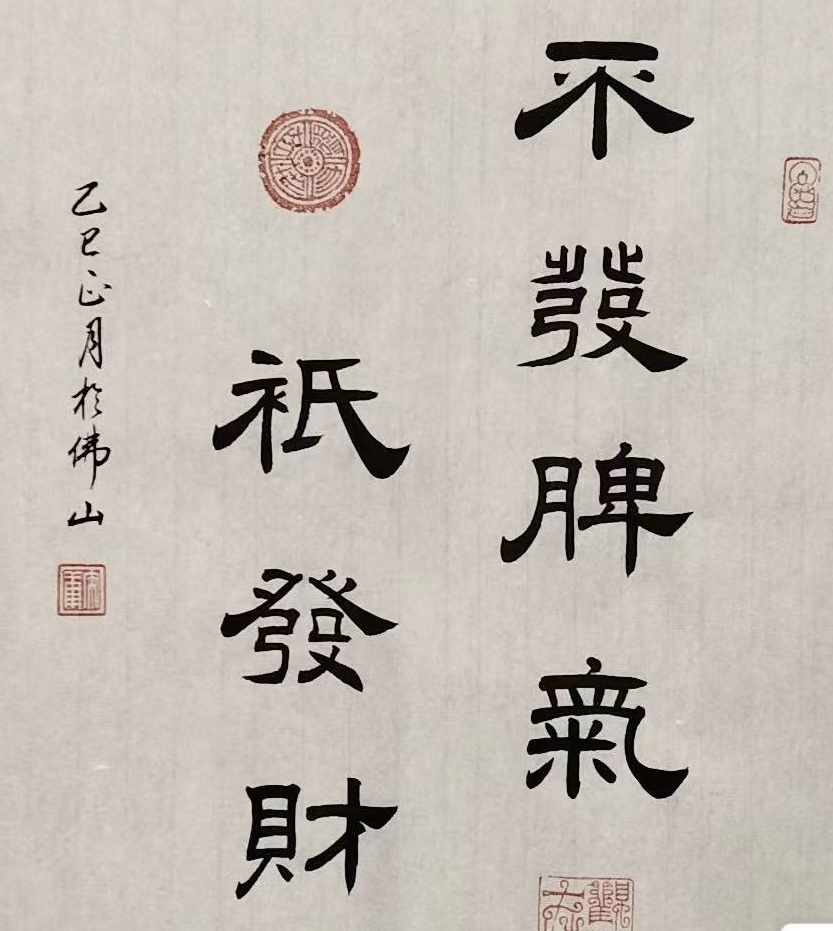 不發脾氣
祇發財
乙巳正月於佛山